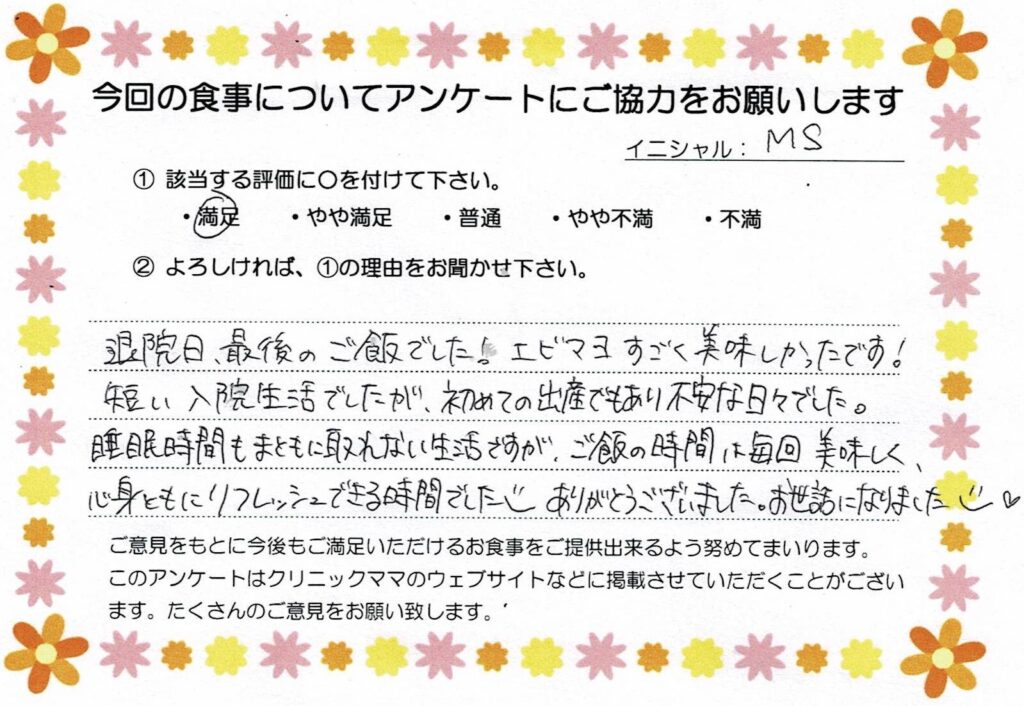 今回の食事についてアンケートにご協力をお願いします
イニシャル： MS
① 該当する評価に〇を付けて下さい。
・満足 ・やや満足 ・普通 ・やや不満 ・不満
② よろしければ、①の理由をお聞かせ下さい。
退院日、最後のご飯でした！エビマヨすごく美味しかったです！
短い入院生活でしたが、初めての出産でもあり不安な日々でした。
睡眠時間もまともに取れない生活ですが、ご飯の時間は毎回美味しく、
心身ともにリフレッシュできる時間でした ありがとうございました。お世話になりました ♡
ご意見をもとに今後もご満足いただけるお食事をご提供出来るよう努めてまいります。
このアンケートはクリニックママのウェブサイトなどに掲載させていただくことがござい
ます。たくさんのご意見をお願い致します。